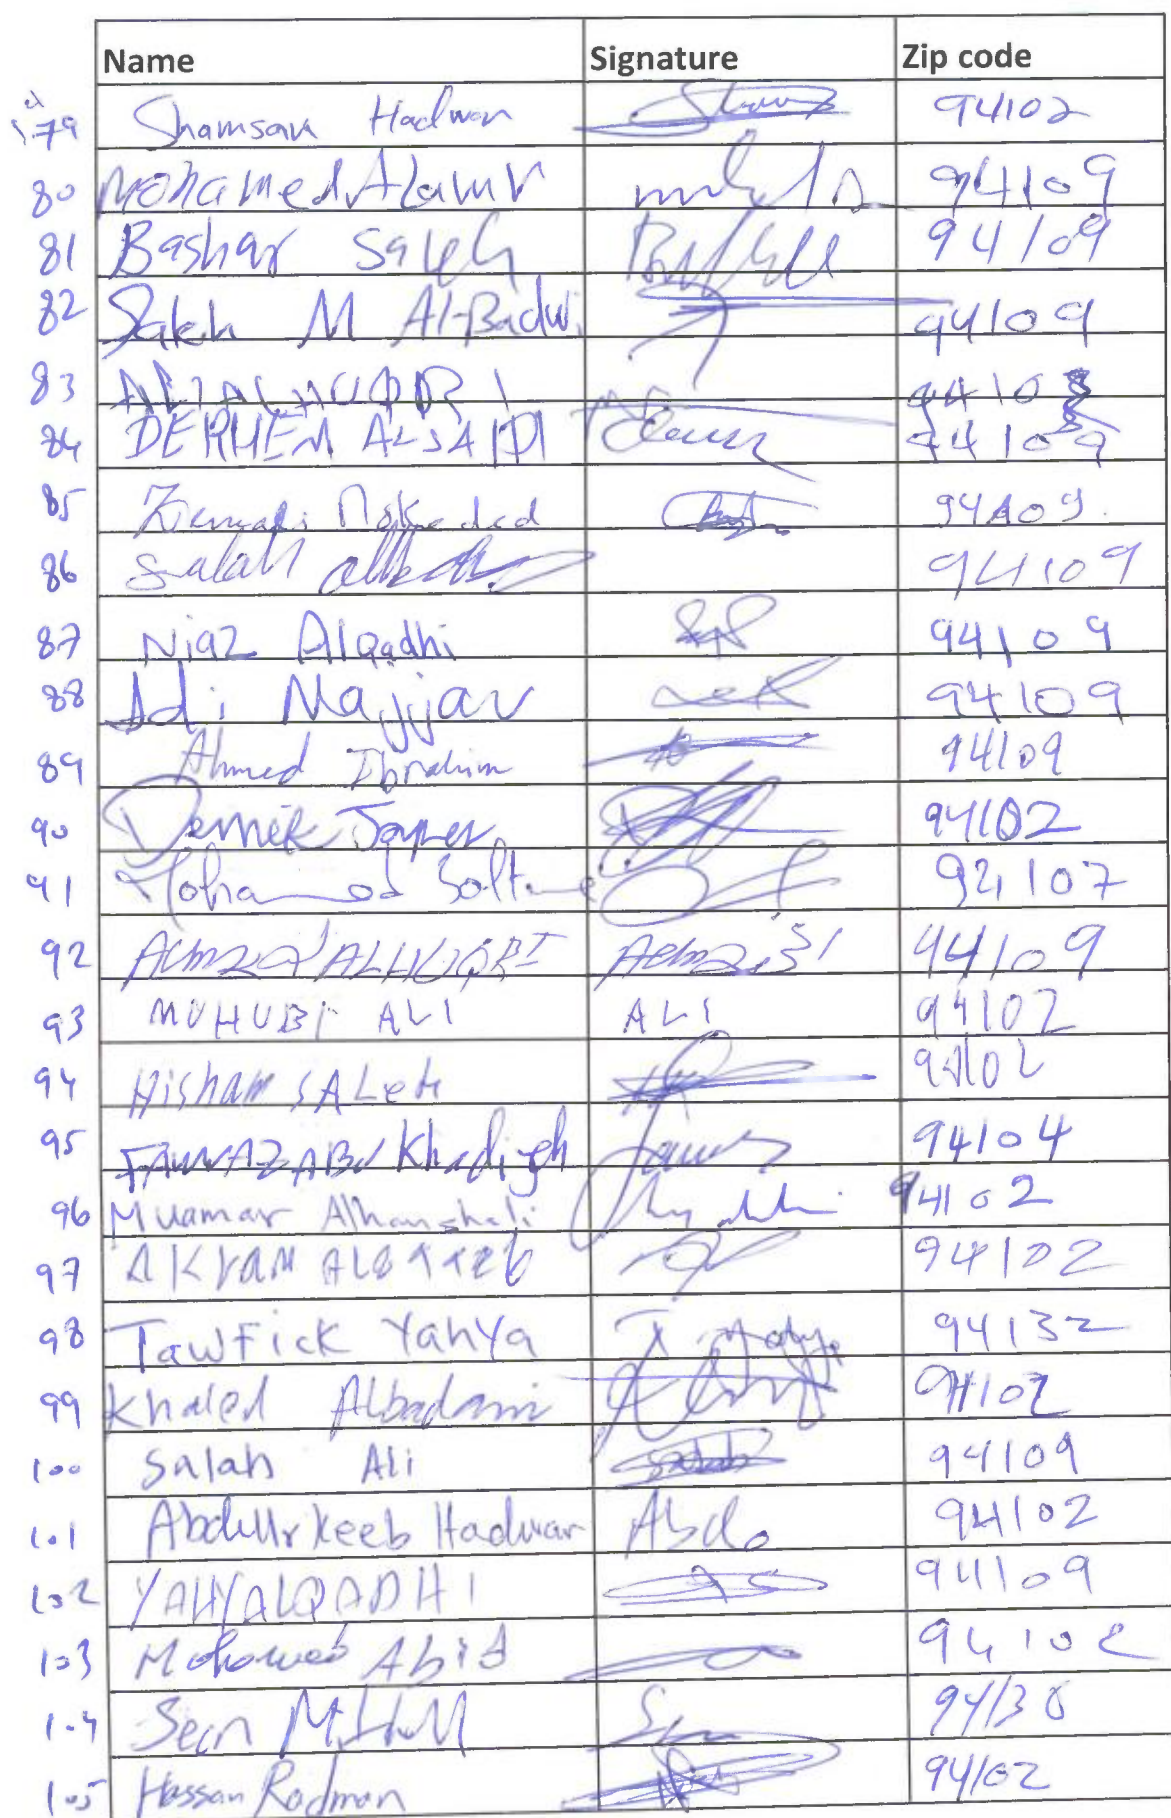 Name Signature Zip code
79 Shamsan Hadwan 94102
80 Mohamed Alamri 94109
81 Bashar Saleh 94109
82 Saleh M Al-Badwi 94109
83 ALI ALHUQBRI
84 DERHEM ALSAIDI 94109
85 94109
86 Salah 94109
87 Niaz Alqadhi 94109
88 Adi Najjar 94109
89 Ahmed Ibrahim 94109
90 94102
91 Mohamed 94107
92 94109
93 MUHUBI ALI ALI 94102
94 HISHAM SALEH 94102
95 FAWAZ ABU Khadiyeh 94104
96 Muamar Alhanshali 94102
97 AKRAM 94102
98 Tawfick Yahya T Yahya 94132
99 Khaled Albadani 94102
100 Salah Ali 94109
101 Abdullrkeeb Hadwan Abdo 94102
102 YAHYALQADHI 94109
103 Mohamed Abid 94102
104 Sean 94130
105 Hassan Radman 94102